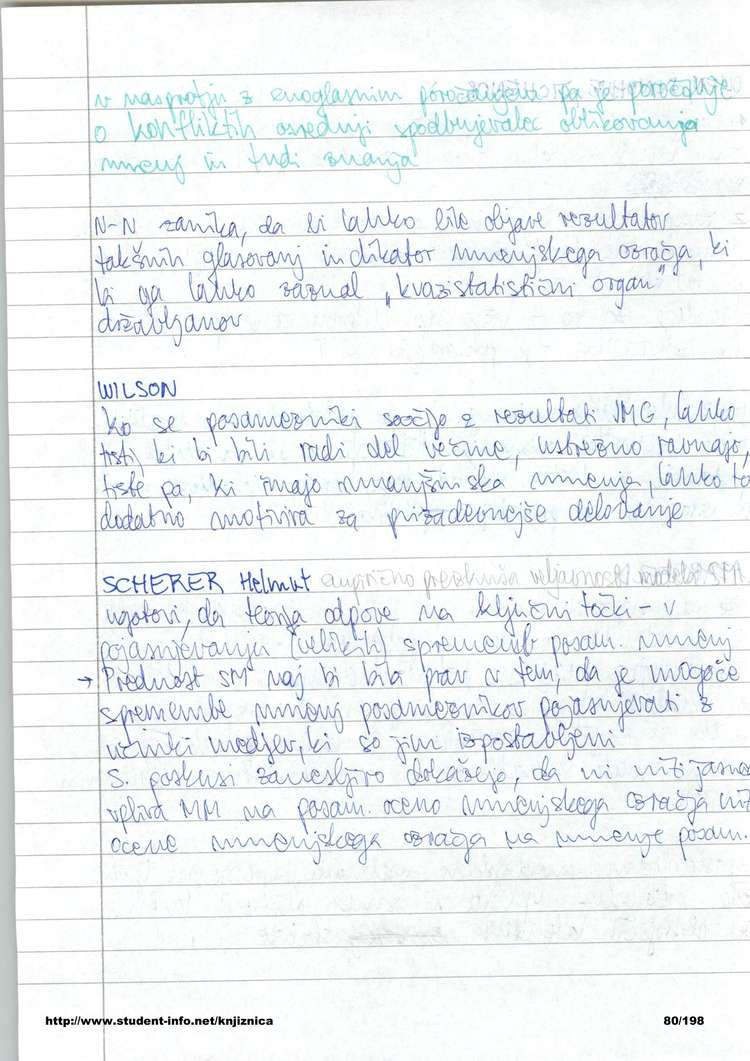 v nasprotju z enoglasnim poročanjem pa je poročanje
o konfliktih osrednji spodbujevalec oblikovanja
mnenj in tudi znanja
N-N zanika, da bi lahko bile objave rezultatov
takšnih glasovanj indikator mnenjskega ozračja, ki
bi ga lahko zaznal "kvazistatistični organ"
državljanov
WILSON
ko se posamezniki soočijo z rezultati JMG, lahko
tisti, ki bi bili radi del večine, ustrezno ravnajo,
tiste pa, ki imajo manjšinska mnenja, lahko to
dodatno motivira za prizadevnejše delovanje
SCHERER Helmut empirično preizkuša veljavnost modela
ugotovi, da teorija odpove na ključni točki - v
pojasnjevanju (velikih) sprememb posam. mnenj
→ Prednost SM naj bi bila prav v tem, da je mogoče
spremembe mnenj posameznikov pojasnjevati z
učinki medijev, ki so jim izpostavljeni
S. poskusi zanesljivo dokažejo, da ni niti jasnega
vpliva MM na posam. oceno mnenjskega ozračja niti
ocene mnenjskega ozračja na mnenje posam.
http://www.student-info.net/knjiznica
80/198